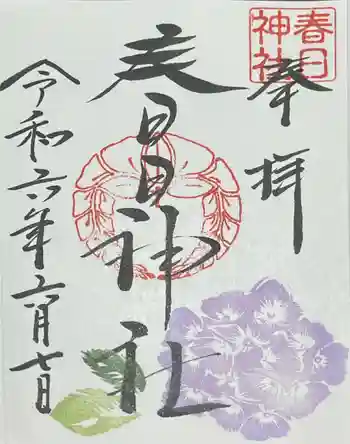 春日神社
奉拝
春日神社
令和六年六月七日